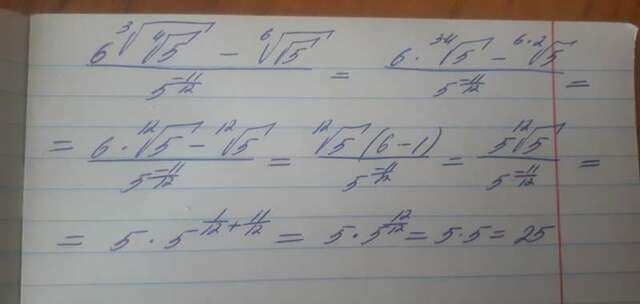 \frac{6\sqrt[3]{\sqrt[4]{5}} - \sqrt[6]{\sqrt{5}}}{5^{\frac{-11}{12}}} = \frac{6 \cdot \sqrt[3 \cdot 4]{5} - \sqrt[6 \cdot 2]{5}}{5^{\frac{-11}{12}}} =
= \frac{6 \cdot \sqrt[12]{5} - \sqrt[12]{5}}{5^{\frac{-11}{12}}} = \frac{\sqrt[12]{5}(6-1)}{5^{\frac{-11}{12}}} = \frac{5\sqrt[12]{5}}{5^{\frac{-11}{12}}} =
= 5 \cdot 5^{\frac{1}{12}+\frac{11}{12}} = 5 \cdot 5^{\frac{12}{12}} = 5 \cdot 5 = 25